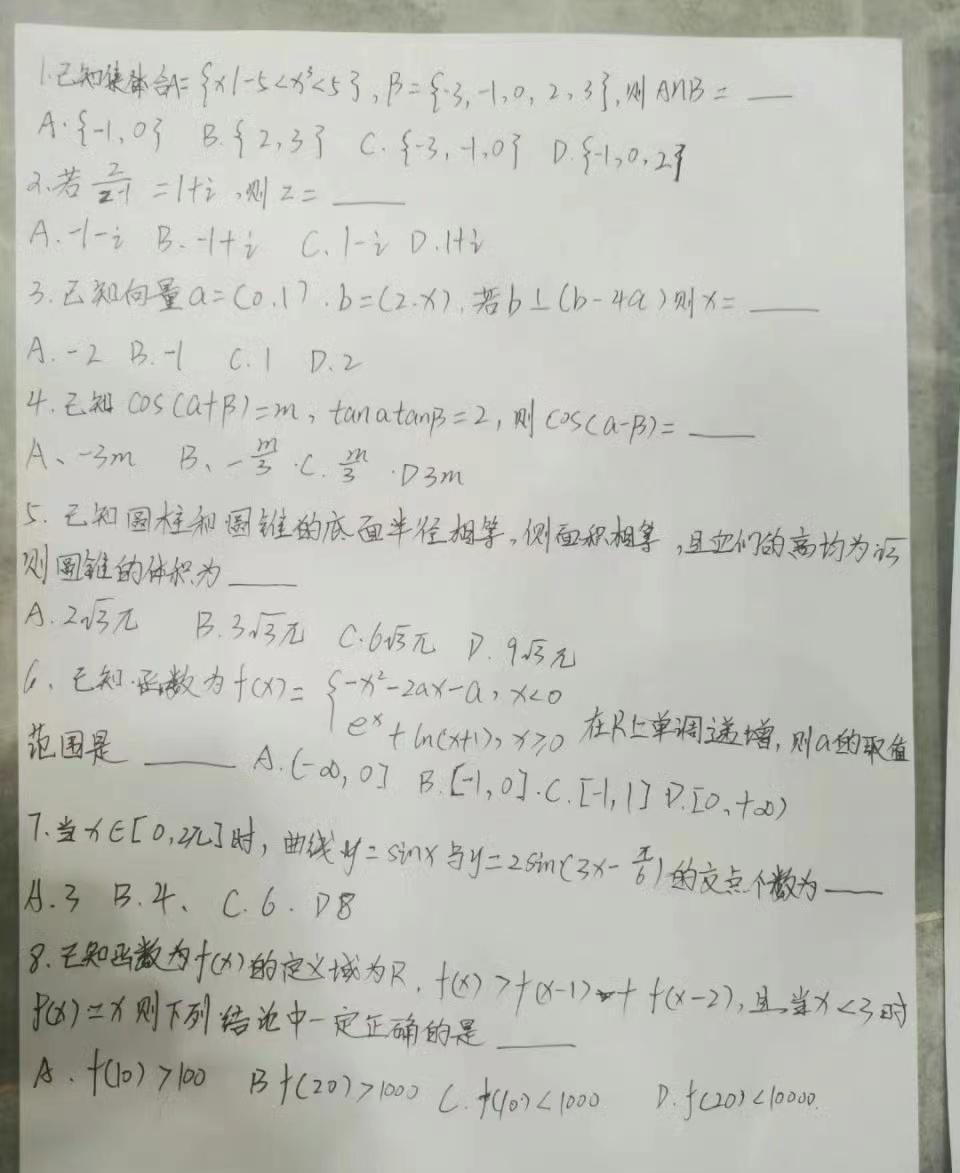 1.已知集合A={x|-5<x³<5},B={-3,-1,0,2,3},则A∩B= ___
A.{-1,0} B.{2,3} C.{-3,-1,0} D.{-1,0,2}
2.若 2/(z-1) =1+i,则z= ___
A.-1-i B.-1+i C.1-i D.1+i
3.已知向量a=(0.1).b=(2.x),若b⊥(b-4a)则x= ___
A.-2 B.-1 C.1 D.2
4.已知cos(a+β)=m,tanatanβ=2,则cos(a-β)= ___
A、-3m B、-m/3 .C.m/3 .D3m
5.已知圆柱和圆锥的底面半径相等,侧面积相等,且它们的高均为√3
则圆锥的体积为 ___
A.2√3π B.3√3π C.6√3π D.9√3π
6、已知函数为f(x)= {-x²-2ax-a,x<0
e^x+ln(x+1),x≥0 在R上单调递增,则a的取值
范围是 ___ A.(-∞,0] B.[-1,0].C.[-1,1] D.[0,+∞)
7.当x∈[0,2π]时,曲线y=sinx与y=2sin(3x-π/6)的交点个数为 ___
A.3 B.4、 C.6. D8
8.已知函数为f(x)的定义域为R.f(x)>f(x-1)+f(x-2),且当x<3时
f(x)=x则下列结论中一定正确的是 ___
A.f(10)>100 B f(20)>1000 C.f(10)<1000 D.f(20)<10000.